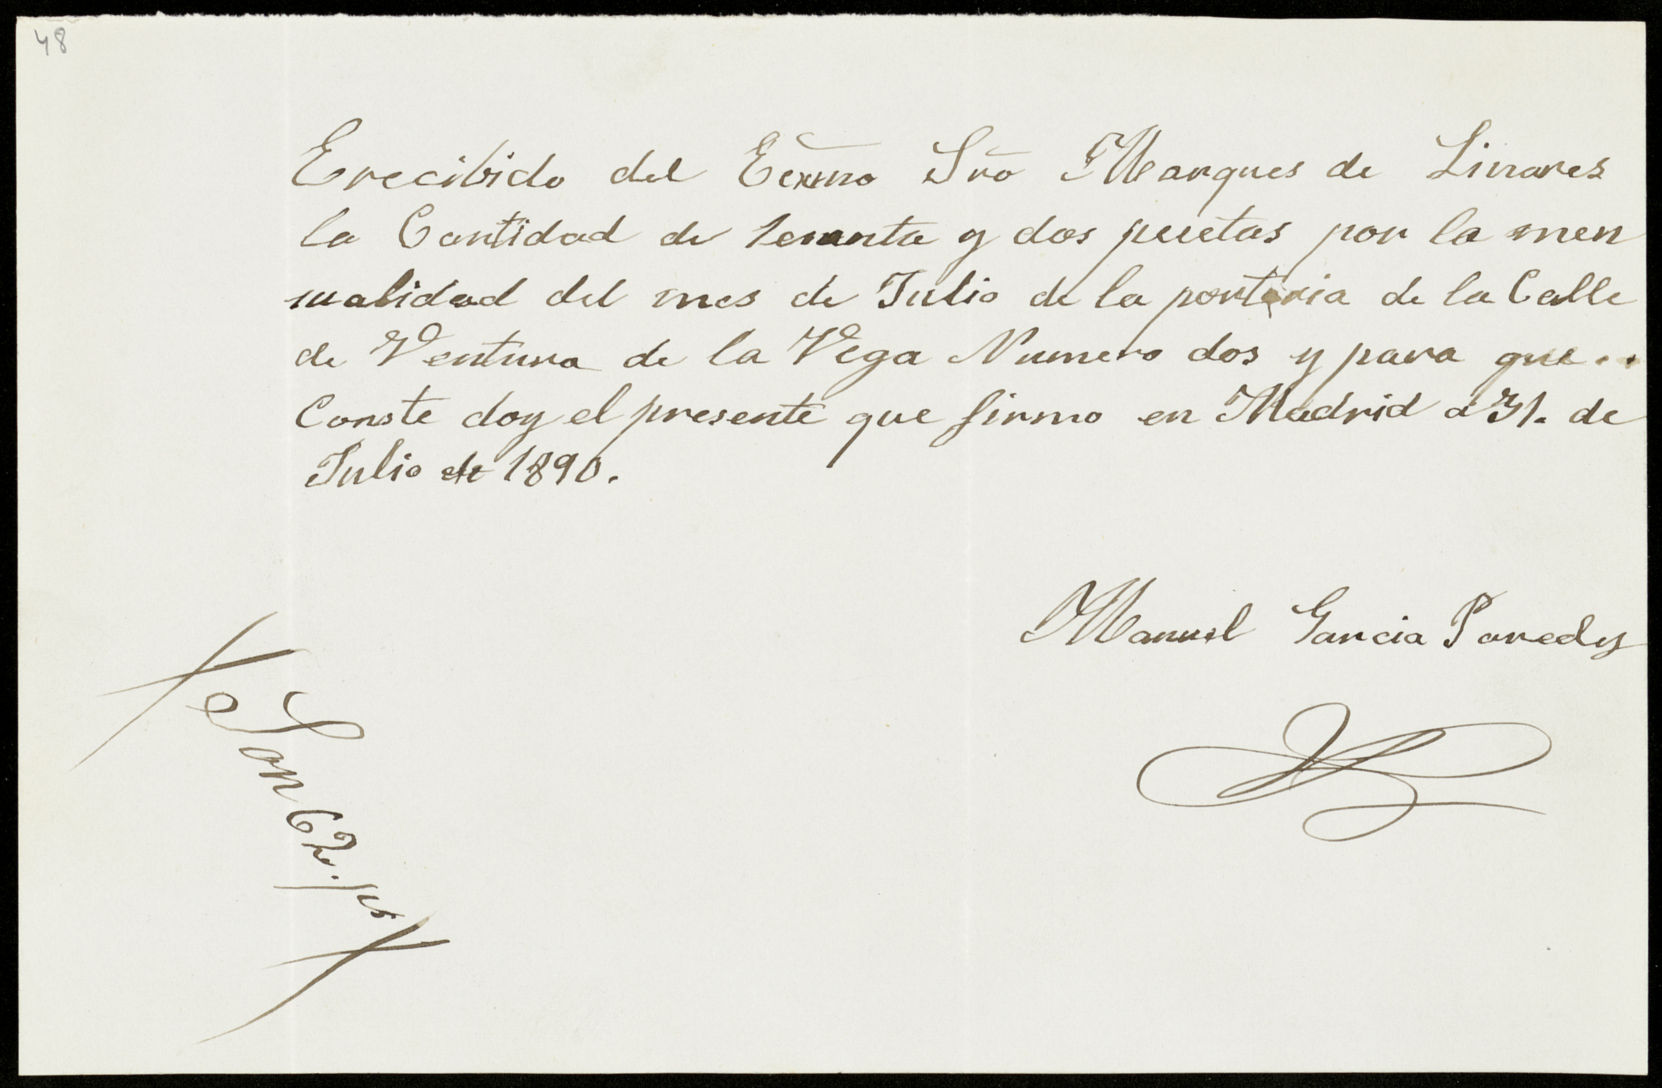 48
Erecibido del Eexmo Sro Marques de Linares
la Cantidad de sesenta y dos pesetas por la men
sualidad del mes de Julio de la porteria de la Calle
de Ventura de la Vega Numero dos y para que..
Conste doy el presente que firmo en Madrid a 31. de
Julio de 1890.
Manuel Garcia Paredes
Son 62. pts